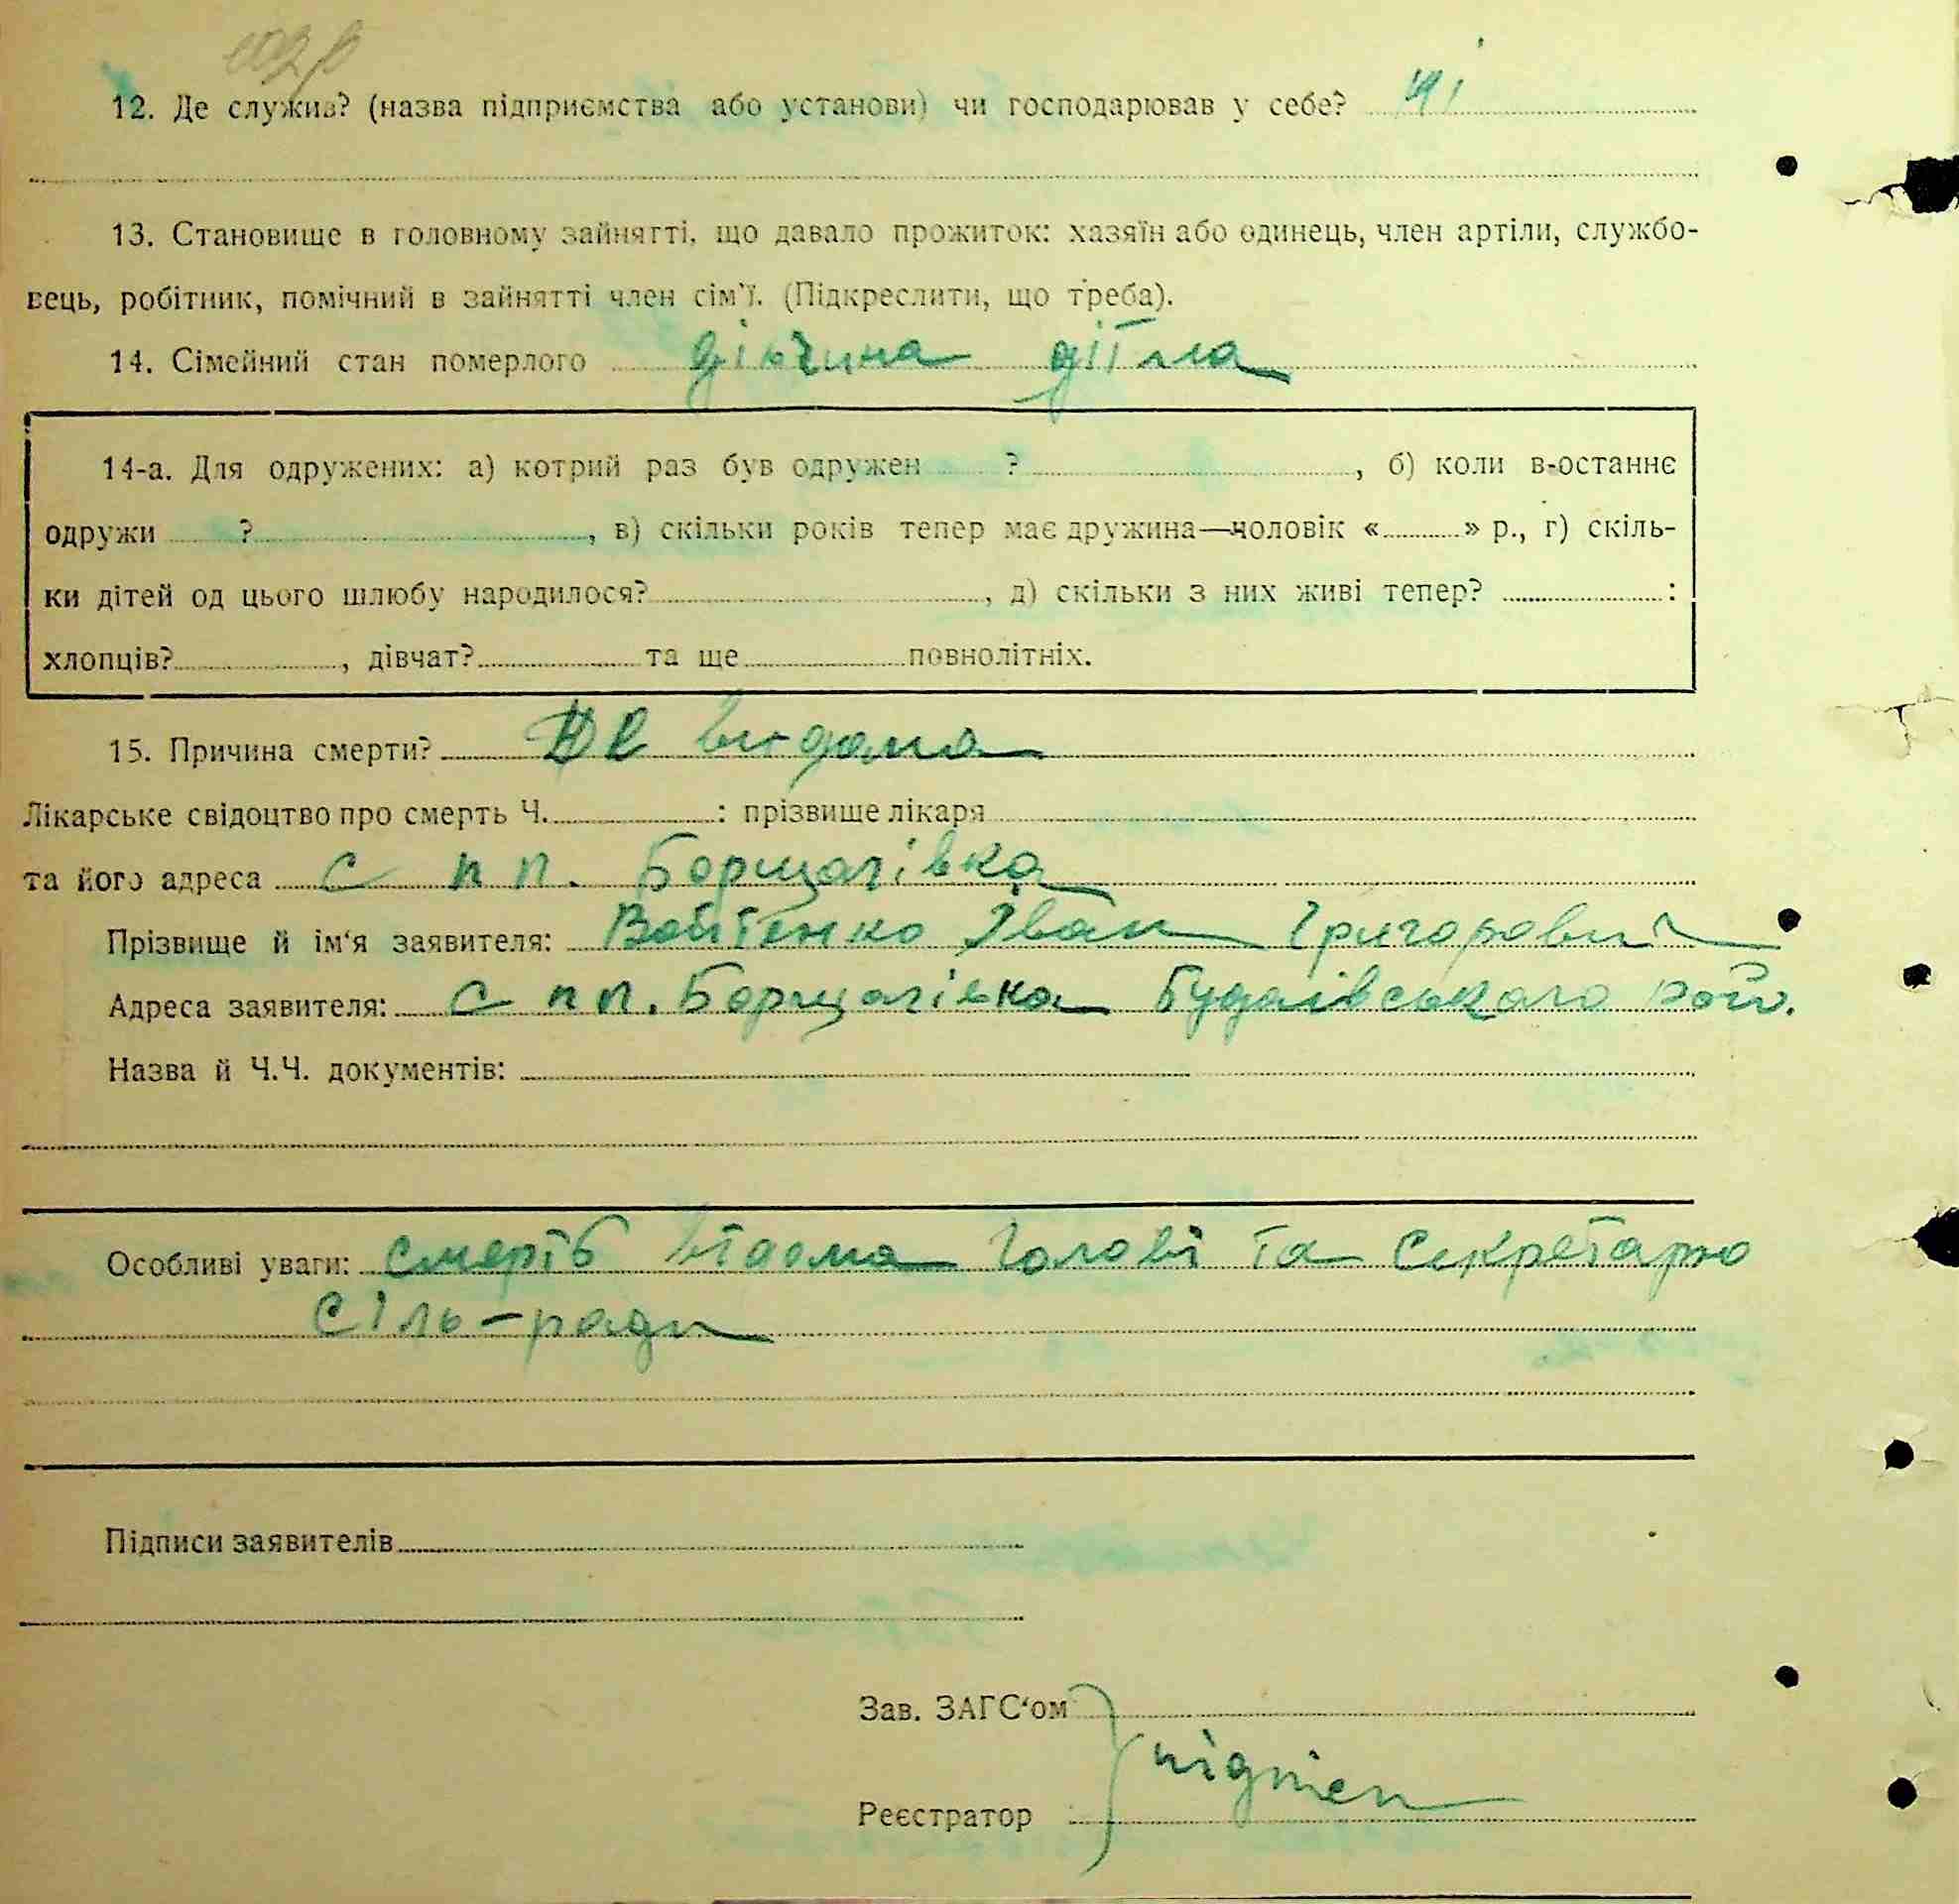 12. Де служив? (назва підприємства або установи) чи господарював у себе? ні
13. Становище в головному зайнятті, що давало прожиток: хазяїн або одинець, член артіли, службо-
вець, робітник, помічний в зайнятті член сім'ї. (Підкреслити, що треба).
14. Сімейний стан померлого дівчина
14-а. Для одружених: а) котрий раз був одружен ? , б) коли в-останнє
одружи ? , в) скільки років тепер має дружина—чоловік « » р., г) скіль-
ки дітей од цього шлюбу народилося? , д) скільки з них живі тепер? :
хлопців? , дівчат? та ще повнолітніх.
15. Причина смерти? не видома
Лікарське свідоцтво про смерть Ч. : прізвище лікаря
та його адреса с пп. Борщагівка
Прізвище й ім'я заявителя: Войтенко Іван Григорович
Адреса заявителя: с пп. Борщагівка Будаївського рай.
Назва й Ч.Ч. документів:
Особливі уваги: смерть голові та секретарю
сіль-ради
Підписи заявителів
Зав. ЗАГС'ом
підписи
Реєстратор